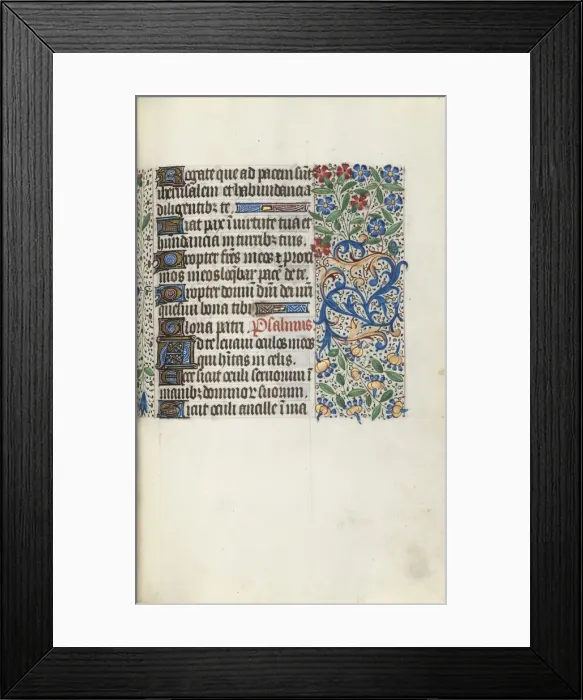 Rogate que ad pacem sūt
iherusalem et habundancia
diligentibꝫ te
Fiat pax in uirtute tua et
habundancia in turribꝫ tuis.
Propter fr̄es meos ⁊ proxi
mos meos loq̄bar pacē de te.
Propter domū dn̄i dei nr̄i
quesiui bona tibi
Gloria patri. Psalmus
Ad te leuaui oculos meos
qui hītas in celis.
Ecce sicut oculi seruorum ī
manibꝫ dominorꝫ suorum.
Sicut oculi ancille ī ma